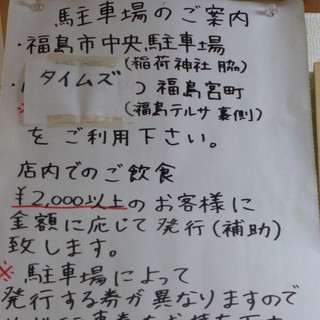 駐車場のご案内
・福島市中央駐車場
(稲荷神社 脇)
タイムズ つ 福島宮町
(福島テルサ 裏側)
※
を ご利用 下さい。
店内でのご飲食
¥2,000以上の お客様に
金額に応じて 発行(補助)
致します。
※ 駐車場によって
発行する券が異なりますので